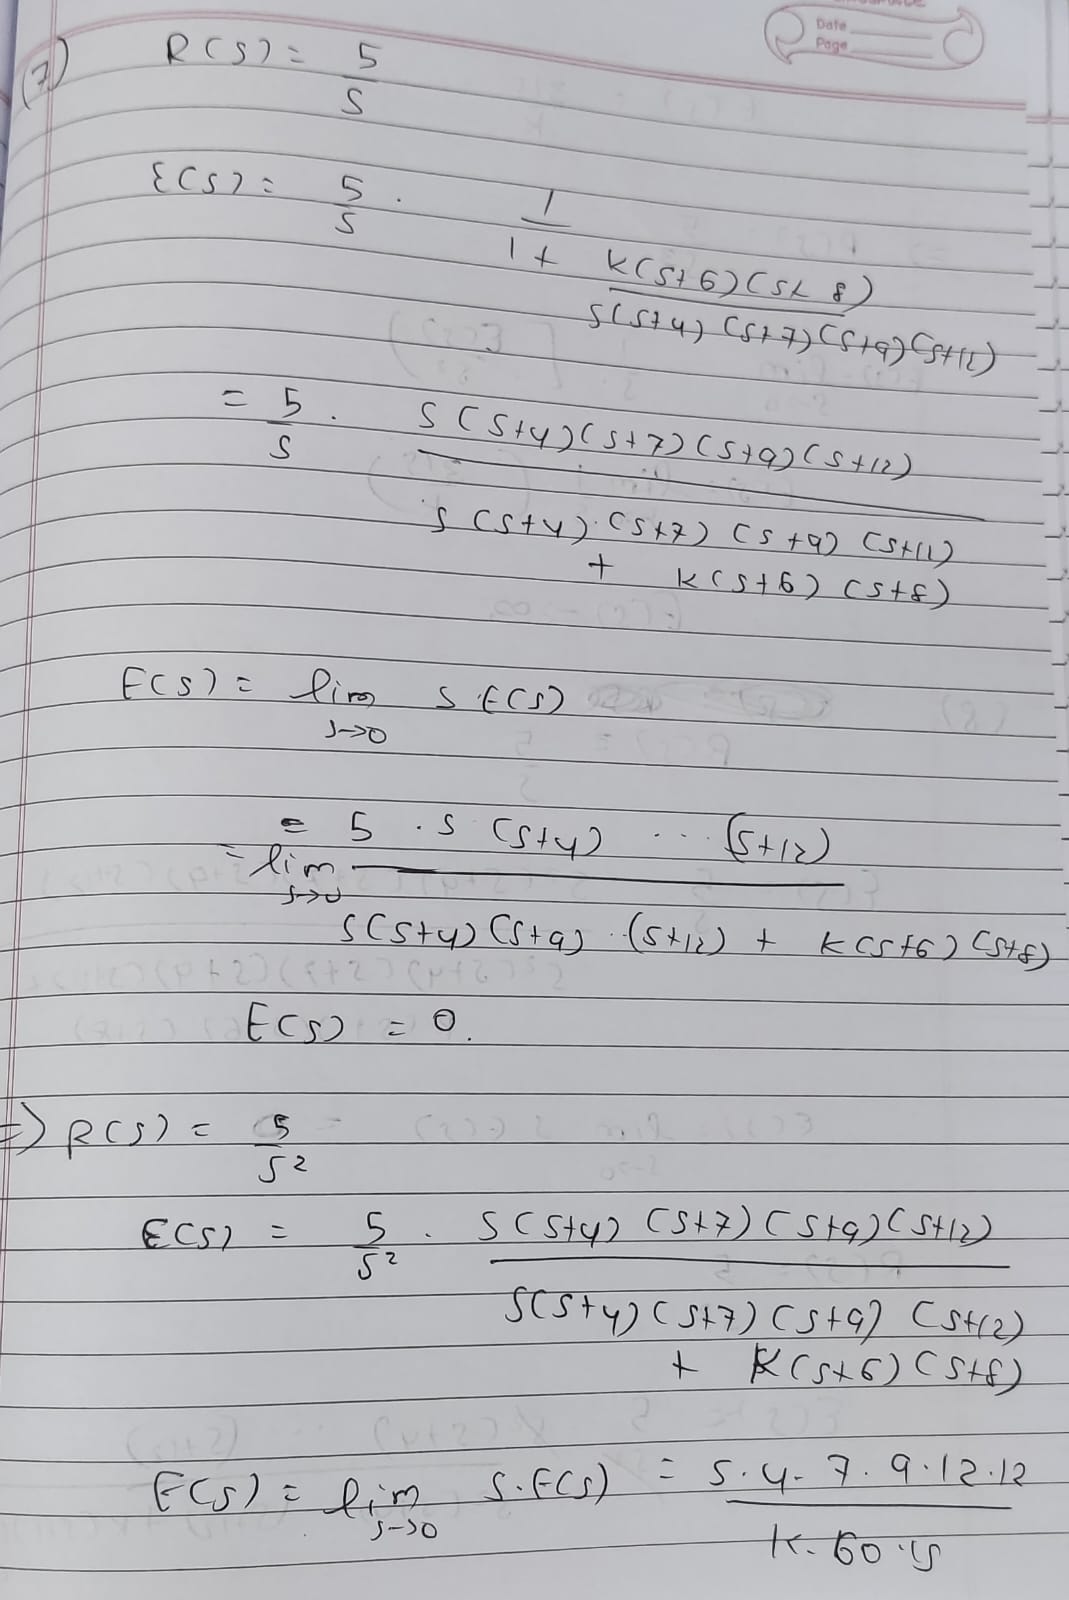 Date
Page
(7) R(s) = 5/s
E(s) = 5/s . 1/(1 + K(s+6)(s+8)/(s(s+4)(s+7)(s+9)(s+12)))
= 5/s . s(s+4)(s+7)(s+9)(s+12)
s(s+4).(s+7)(s+9)(s+12)
+ K(s+6)(s+8)
E(s) = lim s→0 s E(s)
= 5 . s (s+4) ... (s+12)
= lim s→0
s(s+4)(s+9)..(s+12) + K(s+6)(s+8)
E(s) = 0.
=> R(s) = 5/s²
E(s) = 5/s² . s(s+4)(s+7)(s+9)(s+12)
s(s+4)(s+7)(s+9)(s+12)
+ K(s+6)(s+8)
E(s) = lim s→0 s.E(s) = 5.4.7.9.12.12
K.60.15